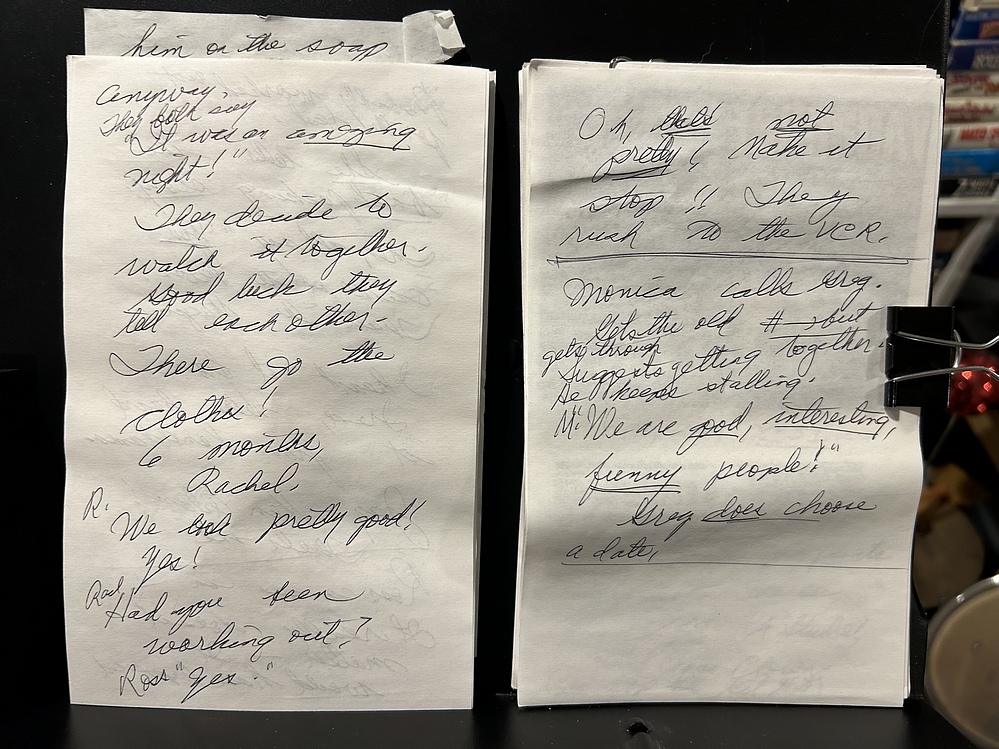 him on the soap
anyway.
They both say
"It was an amazing
night!"
They decide to
watch it together.
Good luck they
tell each other.
There go the
clothes!
6 months,
Rachel.
R. We look pretty good!
Yes!
Rach Had you been
working out?
Ross "Yes."
Oh, that's not
pretty! Make it
stop!! They
rush to the VCR.
Monica calls Greg.
Gets the old # → but
gets through
Suggests getting together.
He keeps stalling.
M: "We are good, interesting,
funny people!"
Greg does choose
a date.